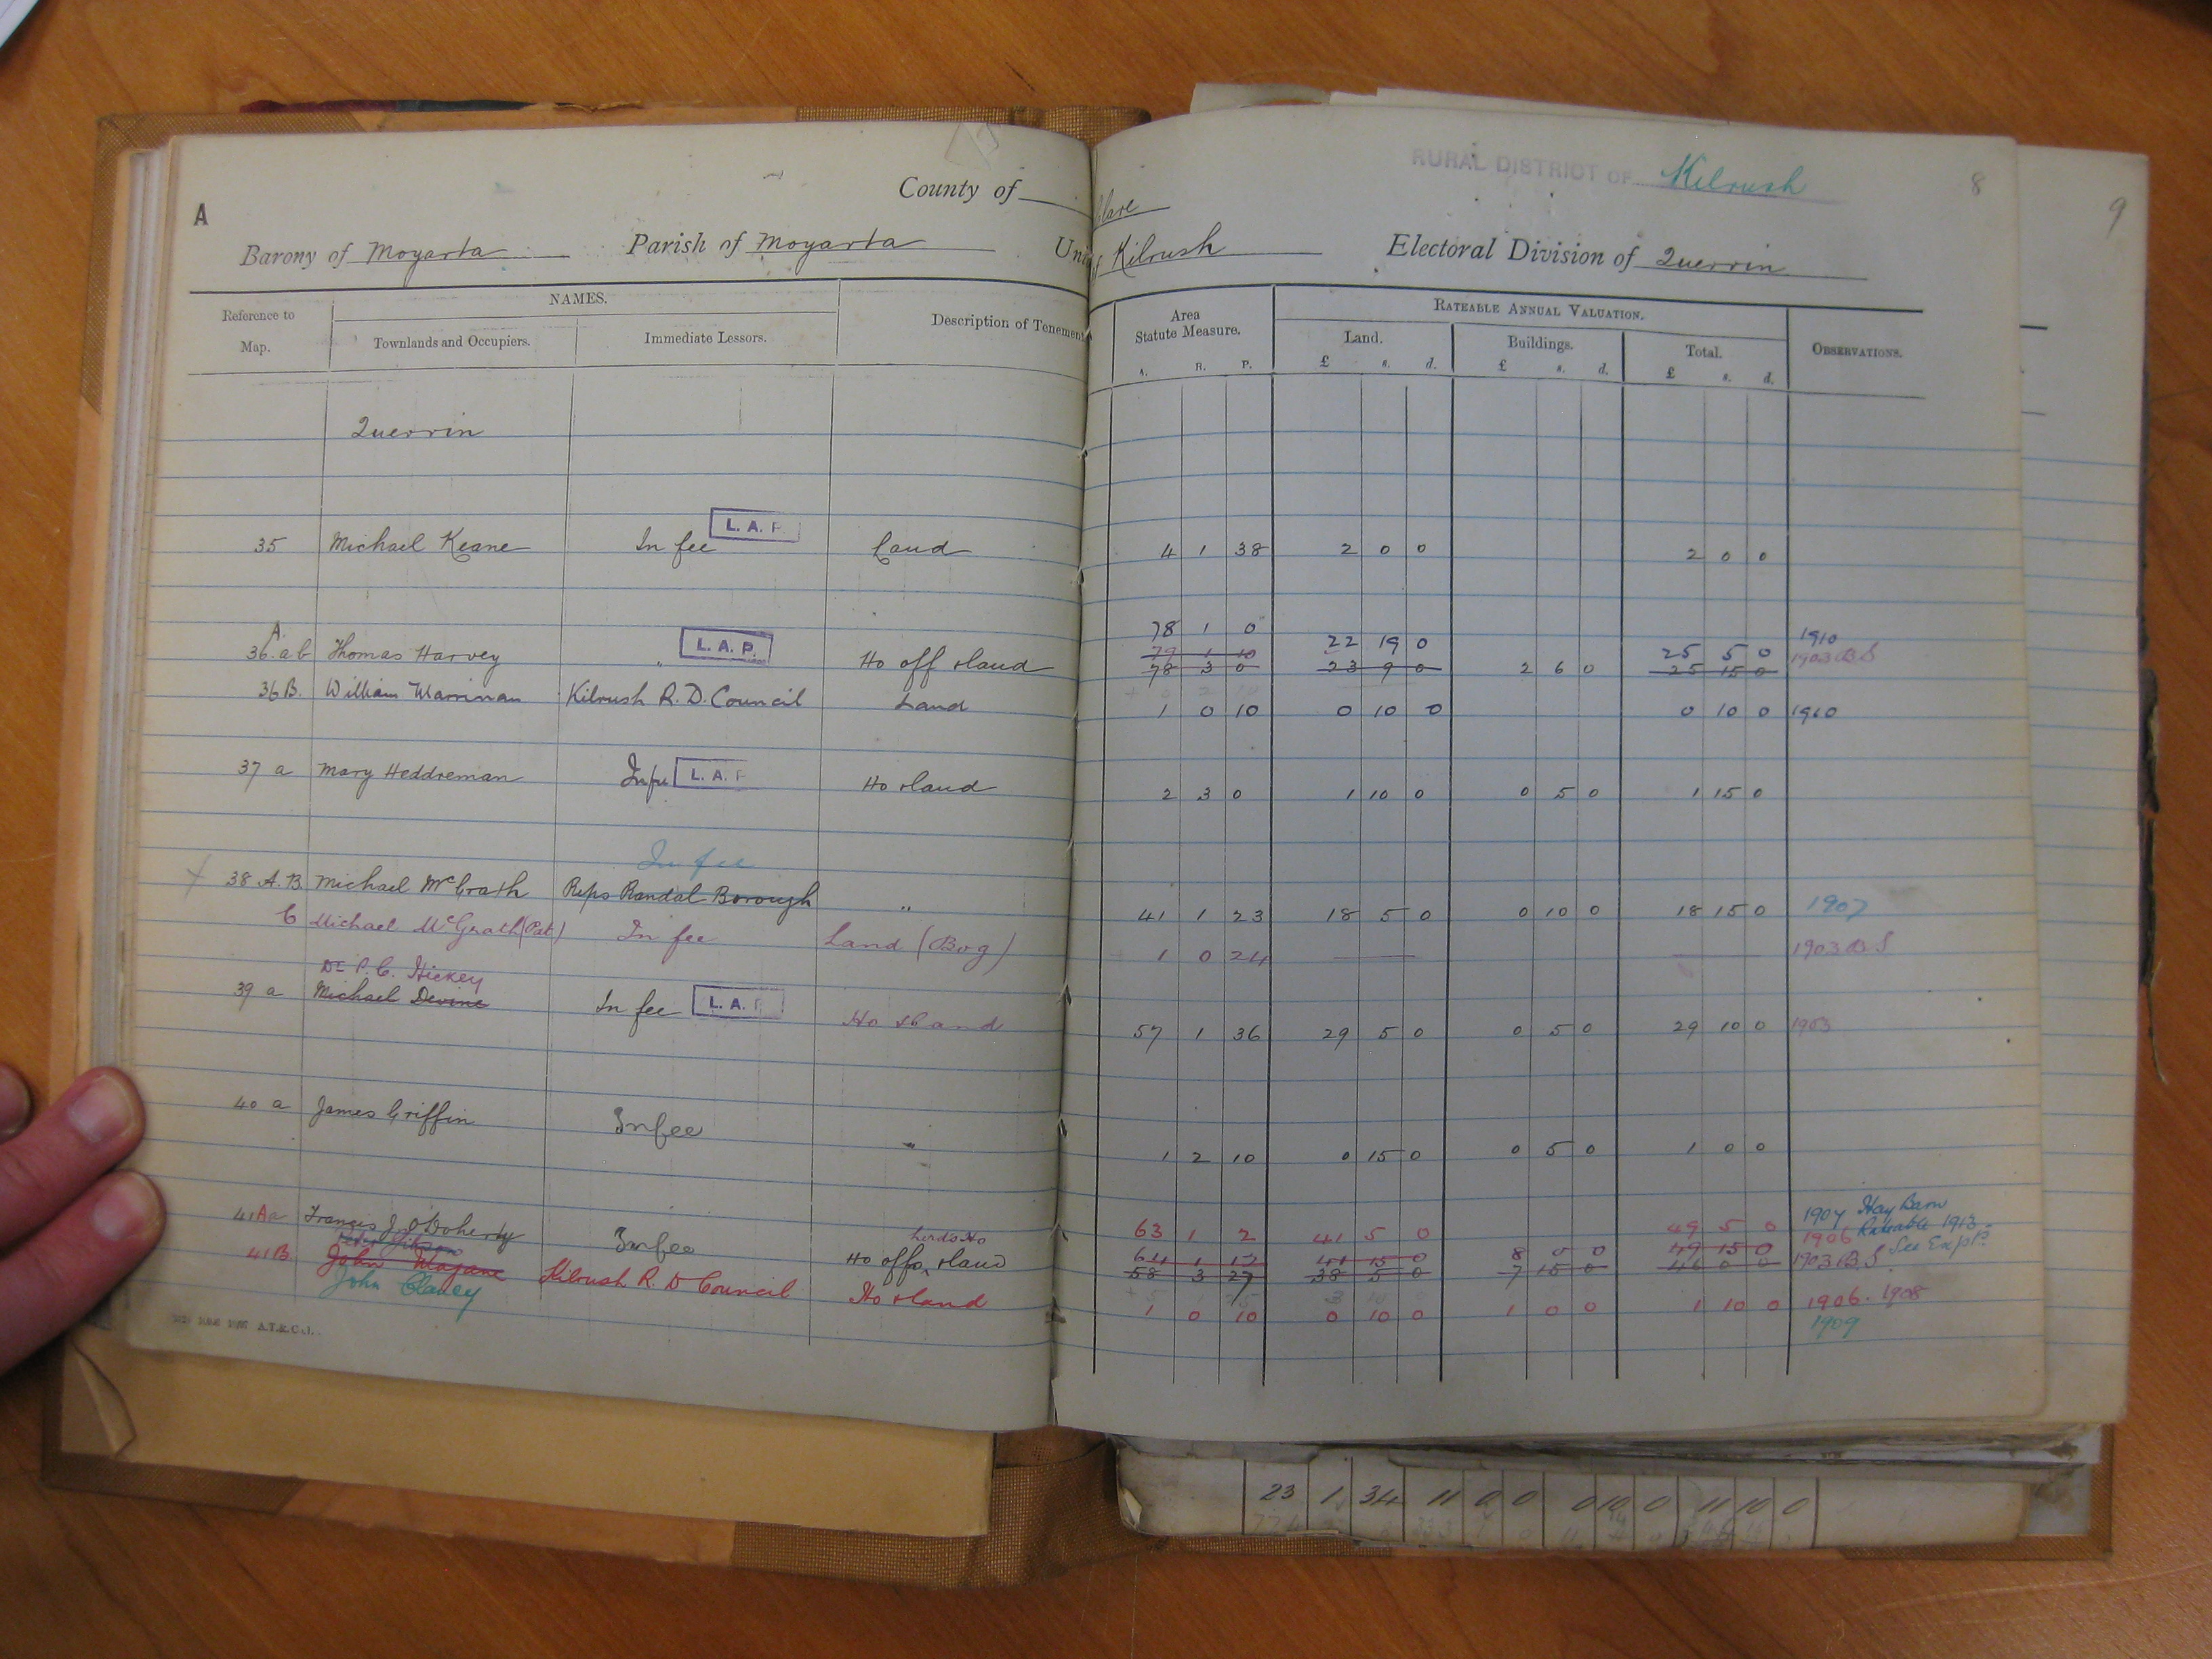 RURAL DISTRICT OF Kilrush
8
9
A
County of Clare
Barony of Moyarta Parish of Moyarta Kilrush Electoral Division of Querrin
Reference to Map.
NAMES.
Townlands and Occupiers.
Immediate Lessors.
Description of Tenement
Area Statute Measure.
A. R. P.
RATEABLE ANNUAL VALUATION.
Land.
£ s. d.
Buildings.
£ s. d.
Total.
£ s. d.
OBSERVATIONS.
Querrin
L. A. P.
35 Michael Keane In fee Land 4 1 38 2 0 0 2 0 0
78 1 0 22 19 0 25 5 0 1910
A
36 a b Thomas Harvey " L. A. P. Ho off & land 79 1 10 1903 B S
78 3 0 23 9 0 2 6 0 25 15 0
36 B. William Marrinan Kilrush R. D. Council Land 1 0 10 0 10 0 0 10 0 1910
37 a Mary Heddreman In fee L. A. P Ho & land 2 3 0 1 10 0 0 5 0 1 15 0
In fee
38 A. B. Michael McGrath Reps Randal Borough " 41 1 23 18 5 0 0 10 0 18 15 0 1907
C Michael McGrath (Pat) In fee Land (Bog) 1 0 24 — — 1903 B S
Dr P. C. Hickey
39 a Michael Devine In fee L. A. Ho & land 57 1 36 29 5 0 0 5 0 29 10 0 1903
40 a James Griffin In fee " 1 2 10 0 15 0 0 5 0 1 0 0
1907 Hay Barn
41 A a Francis J. O'Doherty In fee Herd's Ho 63 1 2 41 5 0 49 5 0 1906 Rateable 1913
Ho offs & land 64 1 12 41 15 0 8 0 0 49 15 0 See Expl.
58 3 27 38 5 0 7 15 0 46 0 0 1903 B S
41 B. John Magane Kilrush R. D Council Ho & land 1 0 10 0 10 0 1 0 0 1 10 0 1906. 1908
John Clancy 1909
23 1 34 11 0 0 0 10 0 11 10 0